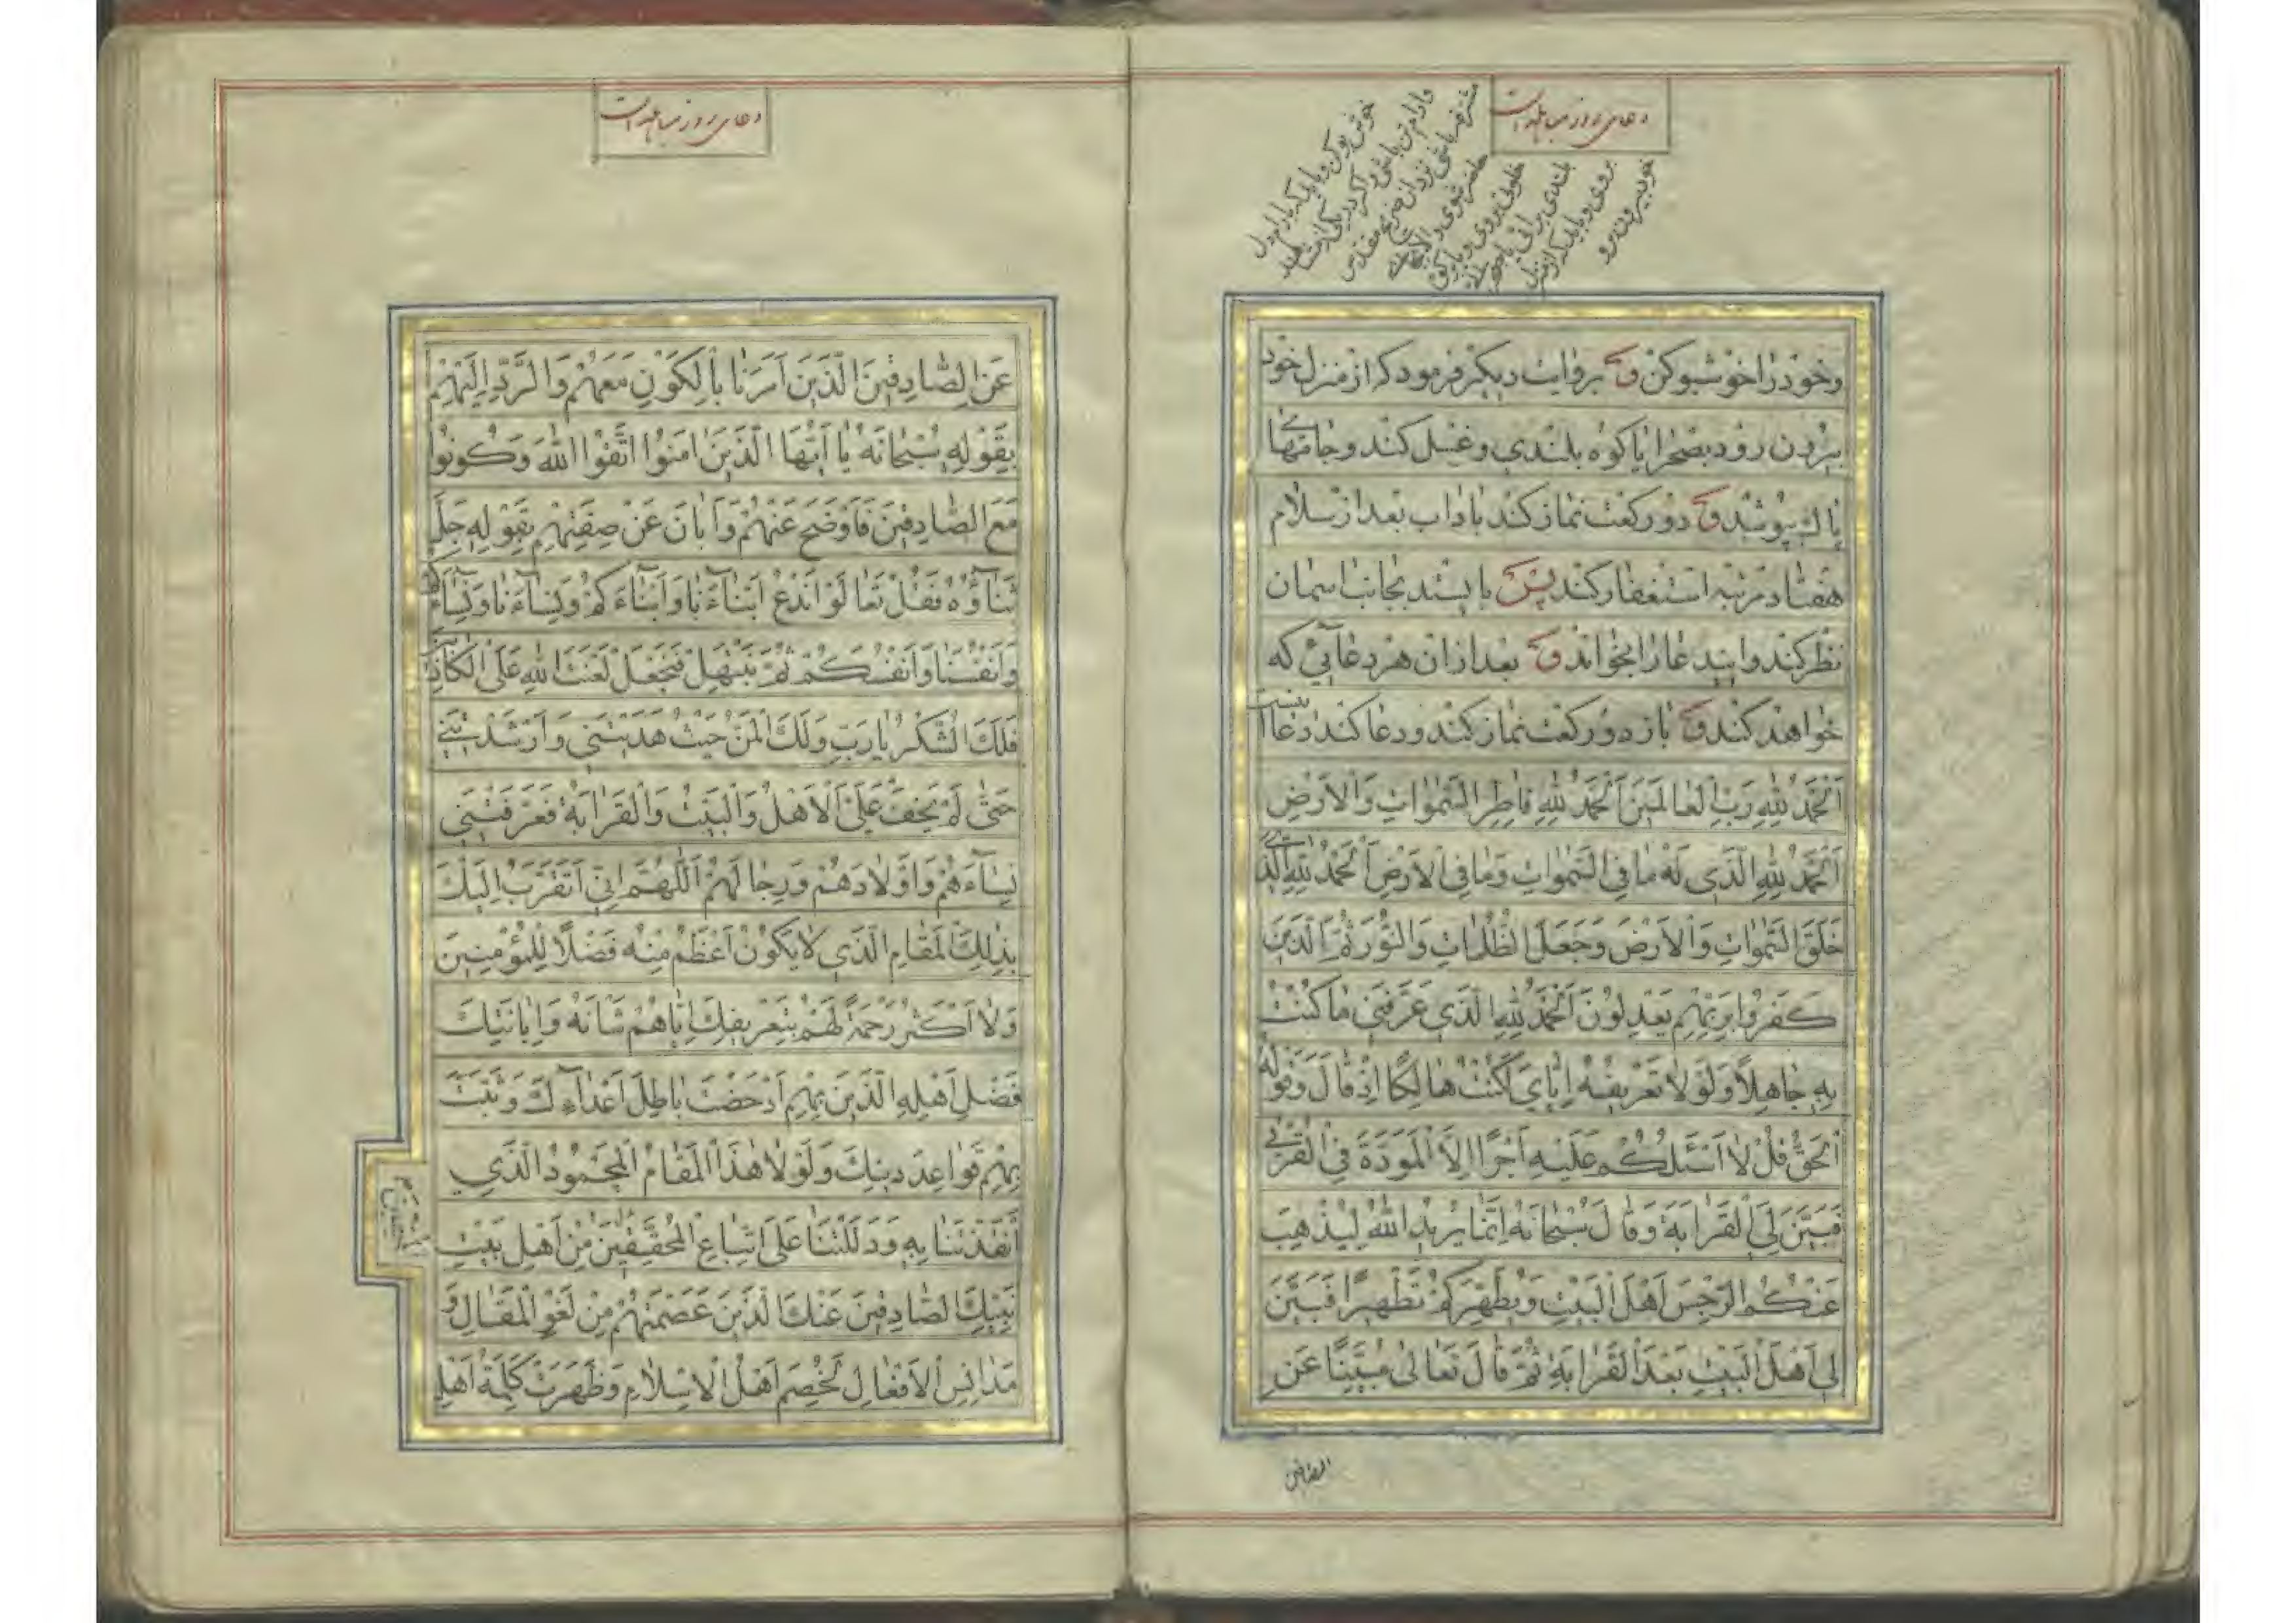 دعای روز مباهله است
خود بیرون رو
وخود را خوشبو کن و بروایت دیگر فرمود که از منزل خود
بیرون رود بصحرا یا کوه بلندی و غسل کند و جامهای
پاك بپوشد و دو رکعت نماز کند باداب بعد از سلام
هفتاد مرتبه استغفار کند پس بایستد بجانب اسمان
نظر کند و این دعا را بخواند و بعد از ان هر دعائی که
خواهند کند و باز دو رکعت نماز کند و دعا کند دعا اینست
اَلْحَمْدُ لِلّٰهِ رَبِّ الْعالَمينَ اَلْحَمْدُ لِلّٰهِ فاطِرِ السَّمٰواتِ وَالْاَرْضِ
اَلْحَمْدُ لِلّٰهِ الَّذي لَهُ ما فِي السَّمٰواتِ وَما فِي الْاَرْضِ اَلْحَمْدُ لِلّٰهِ الَّذي
خَلَقَ السَّمٰواتِ وَالْاَرْضَ وَجَعَلَ الظُّلُماتِ وَالنُّورَ ثُمَّ الَّذينَ
كَفَرُوا بِرَبِّهِمْ يَعْدِلُونَ اَلْحَمْدُ لِلّٰهِ الَّذي عَرَّفَني ما كُنْتُ
بِهِ جاهِلًا وَلَوْ لا تَعْريفُهُ اِيّايَ لَكُنْتُ هالِكًا اِذْ قالَ وَقَوْلُهُ
الْحَقُّ قُلْ لا اَسْئَلُكُمْ عَلَيْهِ اَجْرًا اِلَّا الْمَوَدَّةَ فِي الْقُرْبٰى
فَبَيَّنَ لِيَ الْقَرابَةَ وَقالَ سُبْحانَهُ اِنَّما يُريدُ اللّٰهُ لِيُذْهِبَ
عَنْكُمُ الرِّجْسَ اَهْلَ الْبَيْتِ وَيُطَهِّرَكُمْ تَطْهيرًا فَبَيَّنَ
لي اَهْلَ الْبَيْتِ بَعْدَ الْقَرابَةِ ثُمَّ قالَ تَعالىٰ مُبَيِّنًا عَنِ
الصادقین
دعای روز مباهله است
عَنِ الصّادِقينَ الَّذينَ اَمَرَنا بِالْكَوْنِ مَعَهُمْ وَالرَّدِّ اِلَيْهِمْ
بِقَوْلِهِ سُبْحانَهُ يا اَيُّهَا الَّذينَ امَنُوا اتَّقُوا اللّٰهَ وَكُونُوا
مَعَ الصّادِقينَ فَاَوْضَحَ عَنْهُمْ وَاَبانَ عَنْ صِفَتِهِمْ بِقَوْلِهِ جَلَّ
ثَناؤُهُ فَقُلْ تَعالَوْا نَدْعُ اَبْناءَنا وَاَبْناءَكُمْ وَنِساءَنا وَنِساءَكُمْ
وَاَنْفُسَنا وَاَنْفُسَكُمْ ثُمَّ نَبْتَهِلْ فَنَجْعَلْ لَعْنَتَ اللّٰهِ عَلَى الْكاذِبينَ
فَلَكَ الشُّكْرُ يا رَبِّ وَلَكَ الْمَنُّ حَيْثُ هَدَيْتَني وَاَرْشَدْتَني
حَتّٰى لَمْ يَخْفَ عَلَيَّ الْاَهْلُ وَالْبَيْتُ وَالْقَرابَةُ فَعَرَّفْتَني
نِساءَهُمْ وَاَوْلادَهُمْ وَرِجالَهُمْ اَللّٰهُمَّ اِنّي اَتَقَرَّبُ اِلَيْكَ
بِذٰلِكَ الْمَقامِ الَّذي لا يَكُونُ اَعْظَمُ مِنْهُ فَضْلًا لِلْمُؤْمِنينَ
وَلا اَكْثَرُ رَحْمَةً لَهُمْ بِتَعْريفِكَ اِيّاهُمْ شَاْنَهُ وَاِبانَتِكَ
فَضْلَ اَهْلِهِ الَّذينَ بِهِمْ اَدْحَضْتَ باطِلَ اَعْداءِكَ وَثَبَّتَّ
بِهِمْ قَواعِدَ دينِكَ وَلَوْ لا هٰذَا الْمَقامُ الْمَحْمُودُ الَّذي
اَنْقَذْتَنا بِهِ وَدَلَلْتَنا عَلَى اتِّباعِ الْمُحَقِّقينَ مِنْ اَهْلِ بَيْتِ
نَبِيِّكَ الصّادِقينَ عَنْكَ الَّذينَ عَصَمْتَهُمْ مِنْ لَغْوِ الْمَقالِ وَ
مَدانِسِ الْاَفْعالِ لَخُصِمَ اَهْلُ الْاِسْلامِ وَظَهَرَتْ كَلِمَةُ اَهْلِ